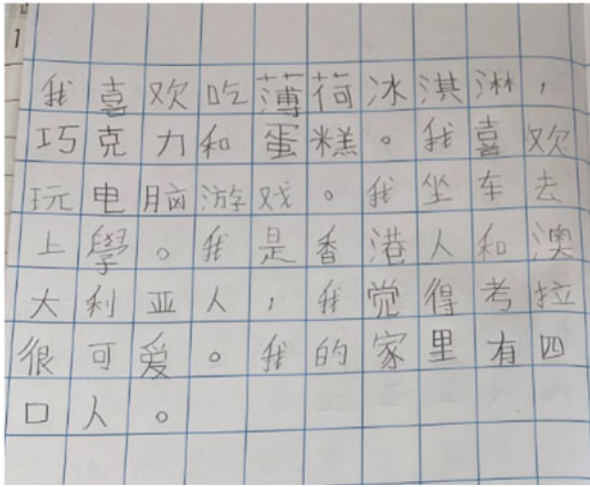 我喜欢吃薄荷冰淇淋，
巧克力和蛋糕。我喜欢
玩电脑游戏。我坐车去
上學。我是香港人和澳
大利亚人，我觉得考拉
很可爱。我的家里有四
口人。